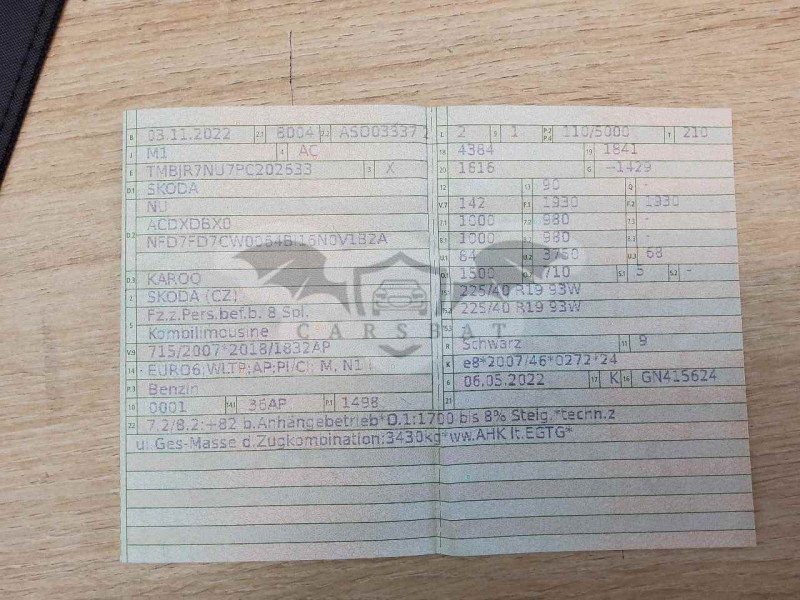 B 03.11.2022 2.1 8004 2.2
J M1 4 AC
E 3 X
D.1 SKODA
NU
D.2 ACDXDBX0
D.3 KAROQ
2 SKODA (CZ)
5 Fz.z.Pers.bef.b. 8 Spl.
Kombilimousine
V.9 715/2007*2018/1832AP
14 EURO6;WLTP;AP;PI/CI; M, N1 I
P.3 Benzin
10 0001 14.1 36AP P.1 1498
L 2 9 1 P.2 P.4 110/5000 T 210
18 4384 19 1841
20 1616 G -1429
12 - 13 90 Q -
V.7 142 F.1 1930 F.2 1930
7.1 1000 7.2 980 7.3 -
8.1 1000 8.2 980 8.3 -
U.1 84 U.2 3750 U.3 68
O.1 1500 O.2 710 S.1 5 S.2 -
15.1 225/40 R19 93W
15.2 225/40 R19 93W
15.3 -
R Schwarz 11 9
K e8*2007/46*0272*24
6 06.05.2022 17 K 16 GN415624
21
22 7.2/8.2:+82 b.Anhängebetrieb*O.1:1700 bis 8% Steig.*techn.z
ul.Ges-Masse d.Zugkombination:3430kg*ww.AHK lt.EGTG*
CARSBAT